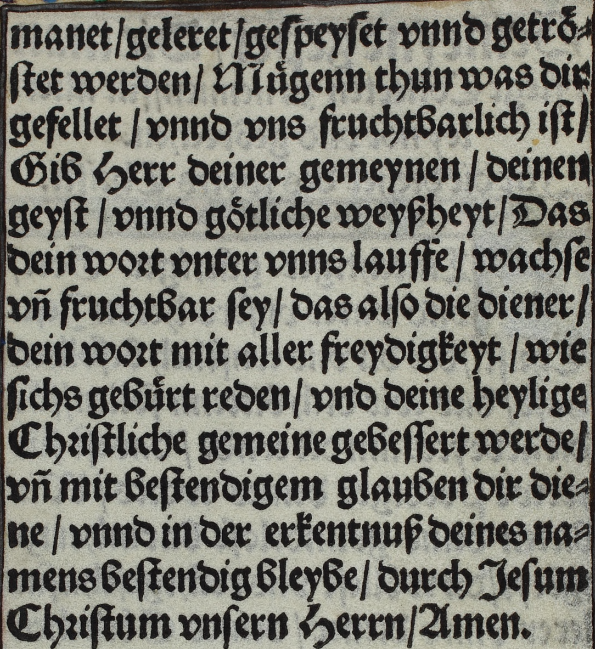 manet/geleret/geſpeyſet vnnd getroͤ-
ſtet werden/ Muͤgenn thun was dir
gefellet / vnnd vns fruchtbarlich iſt/
Gib Herr deiner gemeynen / deinen
geyſt / vnnd goͤtliche weyßheyt/ Das
dein wort vnter vnns lauffe / wachſe
vñ fruchtbar ſey/ das alſo die diener/
dein wort mit aller freydigkeyt / wie
ſichs gebuͤrt reden/ vnd deine heylige
Chriſtliche gemeine gebeſſert werde/
vñ mit beſtendigem glauben dir die-
ne / vnnd in der erkentnuß deines na-
mens beſtendig bleybe/ durch Jeſum
Chriſtum vnſern Herrn/Amen.